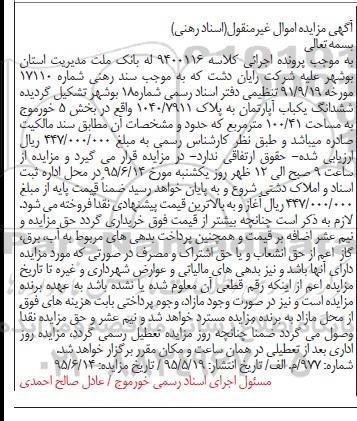 آگهی مزایده اموال غیرمنقول(اسناد رهنی)
بسمه تعالی
به موجب پرونده اجرائی کلاسه ۹۴۰۰۱۱۶ له بانک ملت مدیریت استان
بوشهر علیه شرکت رایان دشت که به موجب سند رهنی شماره ۱۷۱۱۰
مورخه ۹۱/۹/۱۹ تنظیمی دفتر اسناد رسمی شماره۱۸ بوشهر تشکیل گردیده
ششدانگ یکباب آپارتمان به پلاک ۱۰۴۰/۷۹۱۱ واقع در بخش ۵ خورموج
به مساحت ۱۰۰/۴۱ مترمربع که حدود و مشخصات آن مطابق سند مالکیت
صادره میباشد و طبق نظر کارشناس رسمی به مبلغ ۴۴۷/۰۰۰/۰۰۰ ریال
ارزیابی شده– حقوق ارتفاقی ندارد– در مزایده قرار می گیرد و مزایده از
ساعت ۹ صبح الی ۱۲ ظهر روز یکشنبه مورخ ۹۵/۶/۱۴ در محل اداره ثبت
اسناد و املاک دشتی شروع و به پایان خواهد رسید ضمناً قیمت پایه از مبلغ
۴۴۷/۰۰۰/۰۰۰ ریال آغاز و به بالاترین قیمت پیشنهادی نقداً فروخته می شود.
لازم به ذکر است چنانچه بیشتر از قیمت فوق خریداری گردد حق مزایده و
نیم عشر اضافه بر قیمت و همچنین پرداخت بدهی های مربوط به آب، برق،
گاز اعم از حق انشعاب و یا حق اشتراک و مصرف در صورتی که مورد مزایده
دارای آنها باشد و نیز بدهی های مالیاتی و عوارض شهرداری و غیره تا تاریخ
مزایده اعم از اینکه رقم قطعی آن معلوم شده یا نشده باشد به عهده برنده
مزایده است و نیز در صورت وجود مازاد، وجوه پرداختی بابت هزینه های فوق
از محل مازاد به برنده مزایده مسترد خواهد شد و نیم عشر و حق مزایده نقداً
وصول می گردد ضمناً چنانچه روز مزایده تعطیل رسمی گردد، مزایده روز
اداری بعد از تعطیلی در همان ساعت و مکان مقرر برگزار خواهد شد.
شماره: ۹۷۷/م. الف/ تاریخ انتشار: ۹۵/۵/۱۹ / تاریخ مزایده: ۹۵/۶/۱۴
مسئول اجرای اسناد رسمی خورموج / عادل صالح احمدی